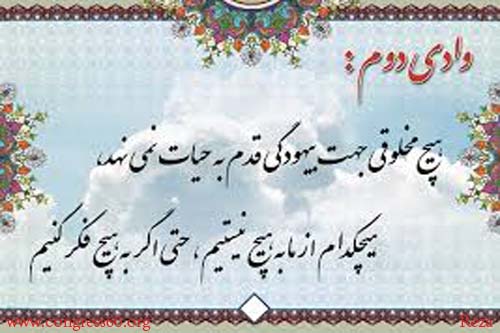 وادی دوم :
هیچ مخلوقی جهت بیهودگی قدم به حیات نمی نهد،
هیچکدام از ما به هیچ نیستیم ، حتی اگر به هیچ فکر کنیم
www.congress60.org
Reza